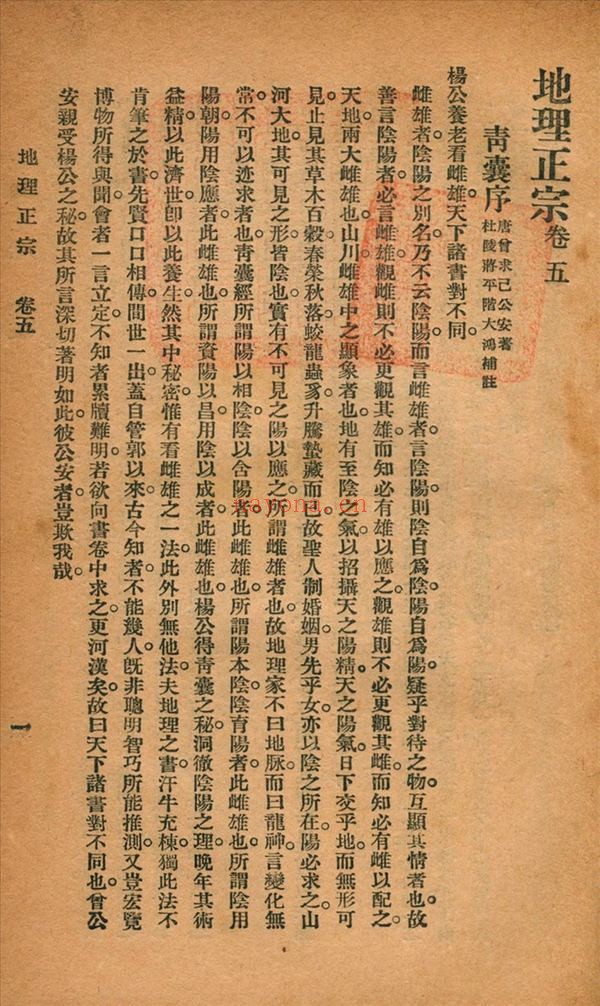 地理正宗 卷五
靑囊序 唐曾求己公安著
杜陵蔣平階大鴻補註
楊公養老看雌雄天下諸書對不同。
雌雄者。陰陽之別名。乃不云陰陽而言雌雄者。言陰陽則陰自爲陰陽自爲陽。疑乎對待之物。互顯其情者也。故
善言陰陽者。必言雌雄。觀雌則不必更觀其雄。而知必有雄以應之。觀雄則不必更觀其雌。而知必有雌以配之。
天地兩大雌雄也。山川雌雄中之顯象者也。地有至陰之氣。以招攝天之陽精。天之陽氣。日下交乎地。而無形可
見。止見其草木百穀春榮秋落。蛟龍蟲豸升騰蟄藏而已。故聖人制婚姻。男先乎女。亦以陰之所在。陽必求之。山
河大地。其可見之形。皆陰也。實有不可見之陽以應之。所謂雌雄者也。故地理家不曰地脈。而曰龍神。言變化無
常。不可以迹求者也。靑囊經所謂陽以相陰。陰以含陽者。此雌雄也。所謂陽本陰。陰育陽者。此雌雄也。所謂陰用
陽朝。陽用陰應者。此雌雄也。所謂資陽以昌。用陰以成者。此雌雄也。楊公得靑囊之秘。洞徹陰陽之理。晚年其術
益精。以此濟世。卽以此養生。然其中秘密。惟有看雌雄之一法。此外別無他法。夫地理之書。汗牛充棟。獨此法不
肯筆之於書。先賢口口相傳。間世一出。蓋自管郭以來。古今知者。不能幾人。旣非聰明智巧所能推測。又豈宏覽
博物所得與聞。會者一言立定。不知者累牘難明。若欲向書卷中求之。更河漢矣。故曰天下諸書對不同也。曾公
安親受楊公之秘。故其所言深切著明如此。彼公安者。豈欺我哉。
地理正宗 卷五
一
sayona.cn